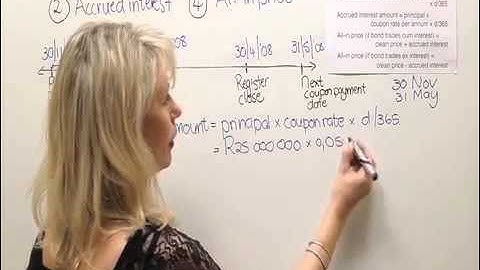 ② Accrued interest ④ All-in price
x d/365
Accrued interest amount = principal x
coupon rate per annum x d/365
All-in price (if bond trades cum interest) =
clean price + accrued interest
All-in price (if bond trades ex interest) =
clean price - accrued interest
30/11 08 30/4/08 31/5/08
Register close
Next coupon payment date
30 Nov
31 May
amount = principal x coupon rate x d/365
= R25 000 000 x 0,05